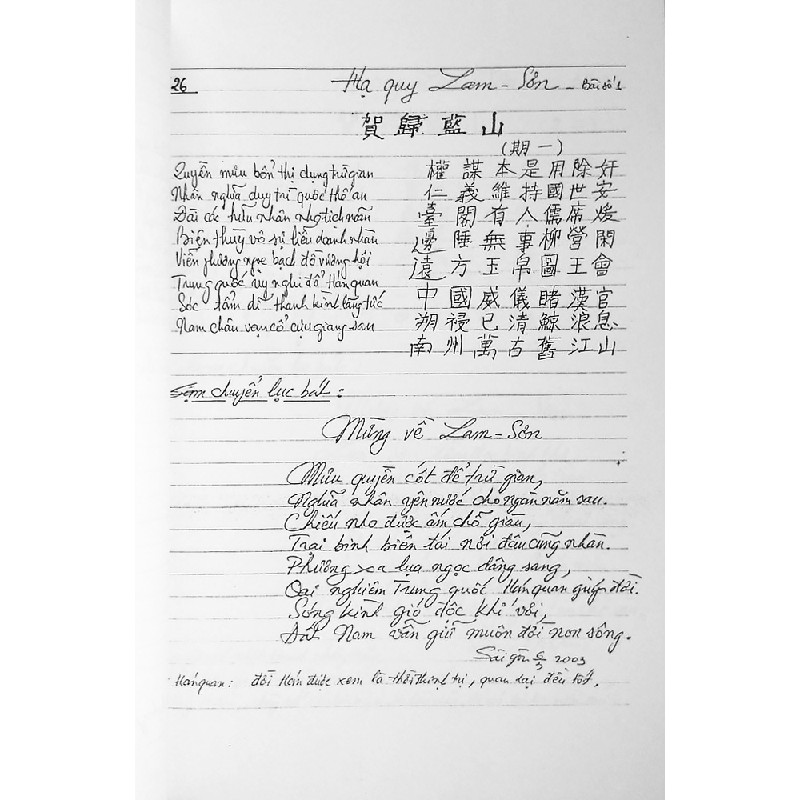 26 Hạ quy Lam-Sơn - Bài số 1
賀歸藍山
(期一)
Quyền mưu bổn thị dụng trừ gian 權謀本是用除奸
Nhân nghĩa duy trì quốc thế an 仁義維持國世安
Đài các hữu nhân nho tịch noãn 臺閣有人儒席煖
Biên thùy vô sự liễu doanh nhàn 邊陲無事柳營閑
Viễn phương ngọc bạch đồ vương hội 遠方玉帛圖王會
Trung quốc uy nghi đổ Hán quan 中國威儀睹漢官
Sóc tẩm dĩ thanh kình lãng tức 朔祲已清鯨浪息
Nam châu vạn cổ cựu giang san 南州萬古舊江山
Tạm chuyển lục bát:
Mừng về Lam-Sơn
Mưu quyền cốt để trừ gian,
Nghĩa nhân yên nước cho ngàn năm sau.
Chiếu nho được ấm chỗ
Trại binh biên tái nơi đâu cũng nhàn.
Phương xa lụa ngọc dâng sang,
Oai nghiêm Trung quốc Hán quan giúp đời.
Sóng kình gió độc khí vơi,
Đất Nam vẫn giữ muôn đời non sông.
Sài gòn 6/3 2003
Hán quan: đời Hán được xem là thời thịnh trị, quan lại đều tốt.